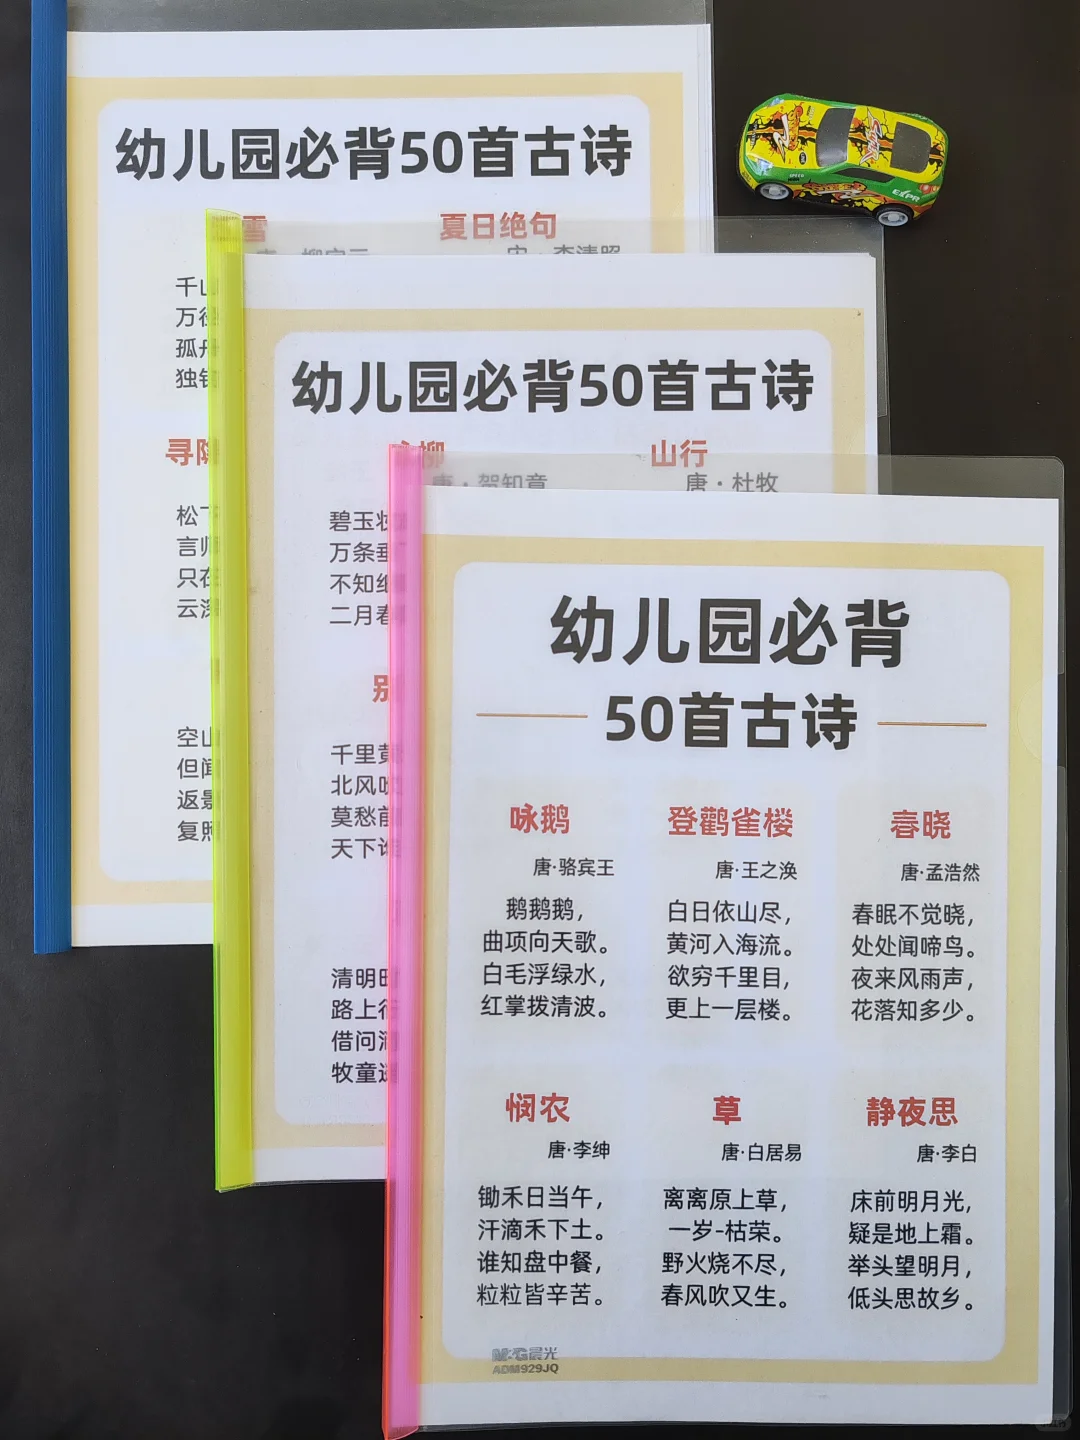 幼儿园必背50首古诗
雪
夏日绝句
唐·柳宗元
宋·李清照
千山
万径
孤舟
独钓
寻隐
松下
言师
只在
云深
空山
但闻
返景
复照
幼儿园必背50首古诗
咏柳
山行
唐·贺知章
唐·杜牧
碧玉妆
万条垂
不知细
二月春
别
千里黄
北风吹
莫愁前
天下谁
清明时
路上行
借问酒
牧童遥
幼儿园必背
50首古诗
咏鹅
唐·骆宾王
鹅鹅鹅，
曲项向天歌。
白毛浮绿水，
红掌拨清波。
登鹳雀楼
唐·王之涣
白日依山尽，
黄河入海流。
欲穷千里目，
更上一层楼。
春晓
唐·孟浩然
春眠不觉晓，
处处闻啼鸟。
夜来风雨声，
花落知多少。
悯农
唐·李绅
锄禾日当午，
汗滴禾下土。
谁知盘中餐，
粒粒皆辛苦。
草
唐·白居易
离离原上草，
一岁-枯荣。
野火烧不尽，
春风吹又生。
静夜思
唐·李白
床前明月光，
疑是地上霜。
举头望明月，
低头思故乡。
M&G晨光
ADM929JQ
SPEED
EXPR